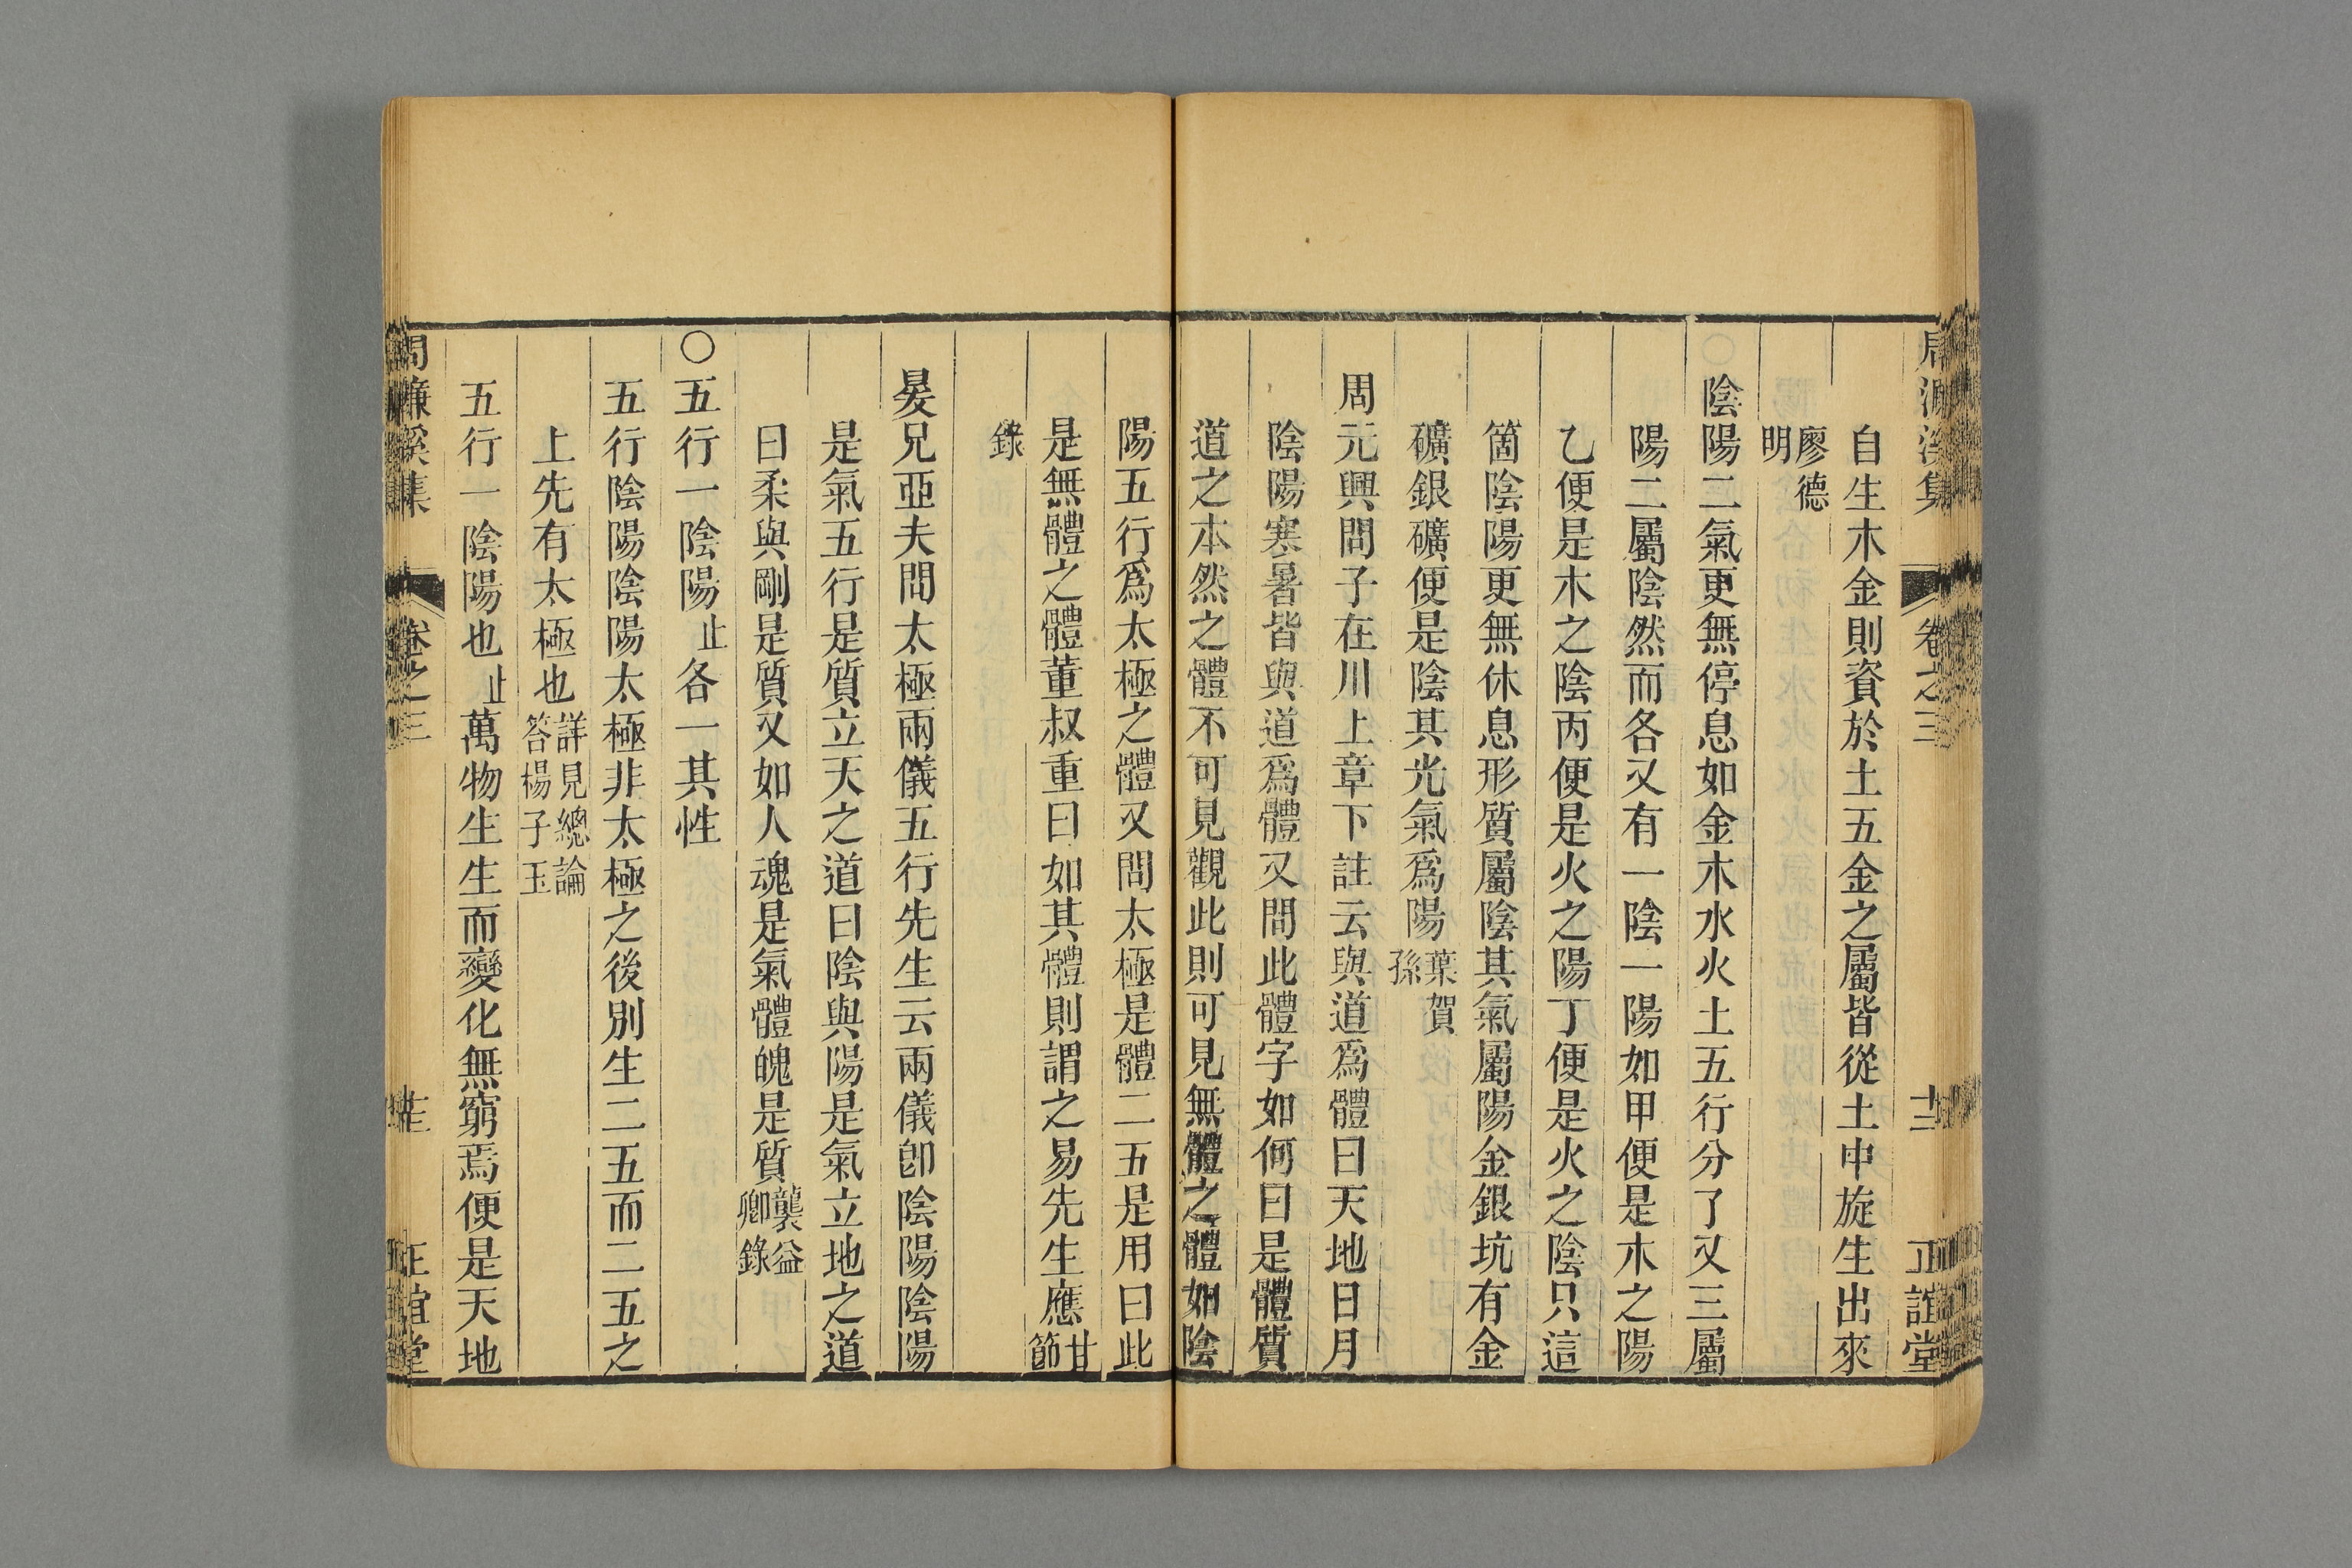 周濂溪集 卷之三 十二 正誼堂
自生木金則資於土五金之屬皆從土中旋生出來
廖德明
陰陽二氣更無停息如金木水火土五行分了又三屬
陽二屬陰然而各又有一陰一陽如甲便是木之陽
乙便是木之陰丙便是火之陽丁便是火之陰只這
箇陰陽更無休息形質屬陰其氣屬陽金銀坑有金
礦銀礦便是陰其光氣爲陽葉賀孫
周元興問子在川上章下註云與道爲體曰天地日月
陰陽寒暑皆與道爲體又問此體字如何曰是體質
道之本然之體不可見觀此則可見無體之體如陰
陽五行爲太極之體又問太極是體二五是用曰此
是無體之體董叔重曰如其體則謂之易先生應甘節
錄
㬊兄亞夫問太極兩儀五行先生云兩儀卽陰陽陰陽
是氣五行是質立天之道曰陰與陽是氣立地之道
曰柔與剛是質又如人魂是氣體魄是質龔益卿錄
○五行一陰陽止各一其性
五行陰陽陰陽太極非太極之後別生二五而二五之
上先有太極也詳見總論答楊子玉
五行一陰陽也止萬物生生而變化無窮焉便是天地
周濂溪集 卷之三 正誼堂